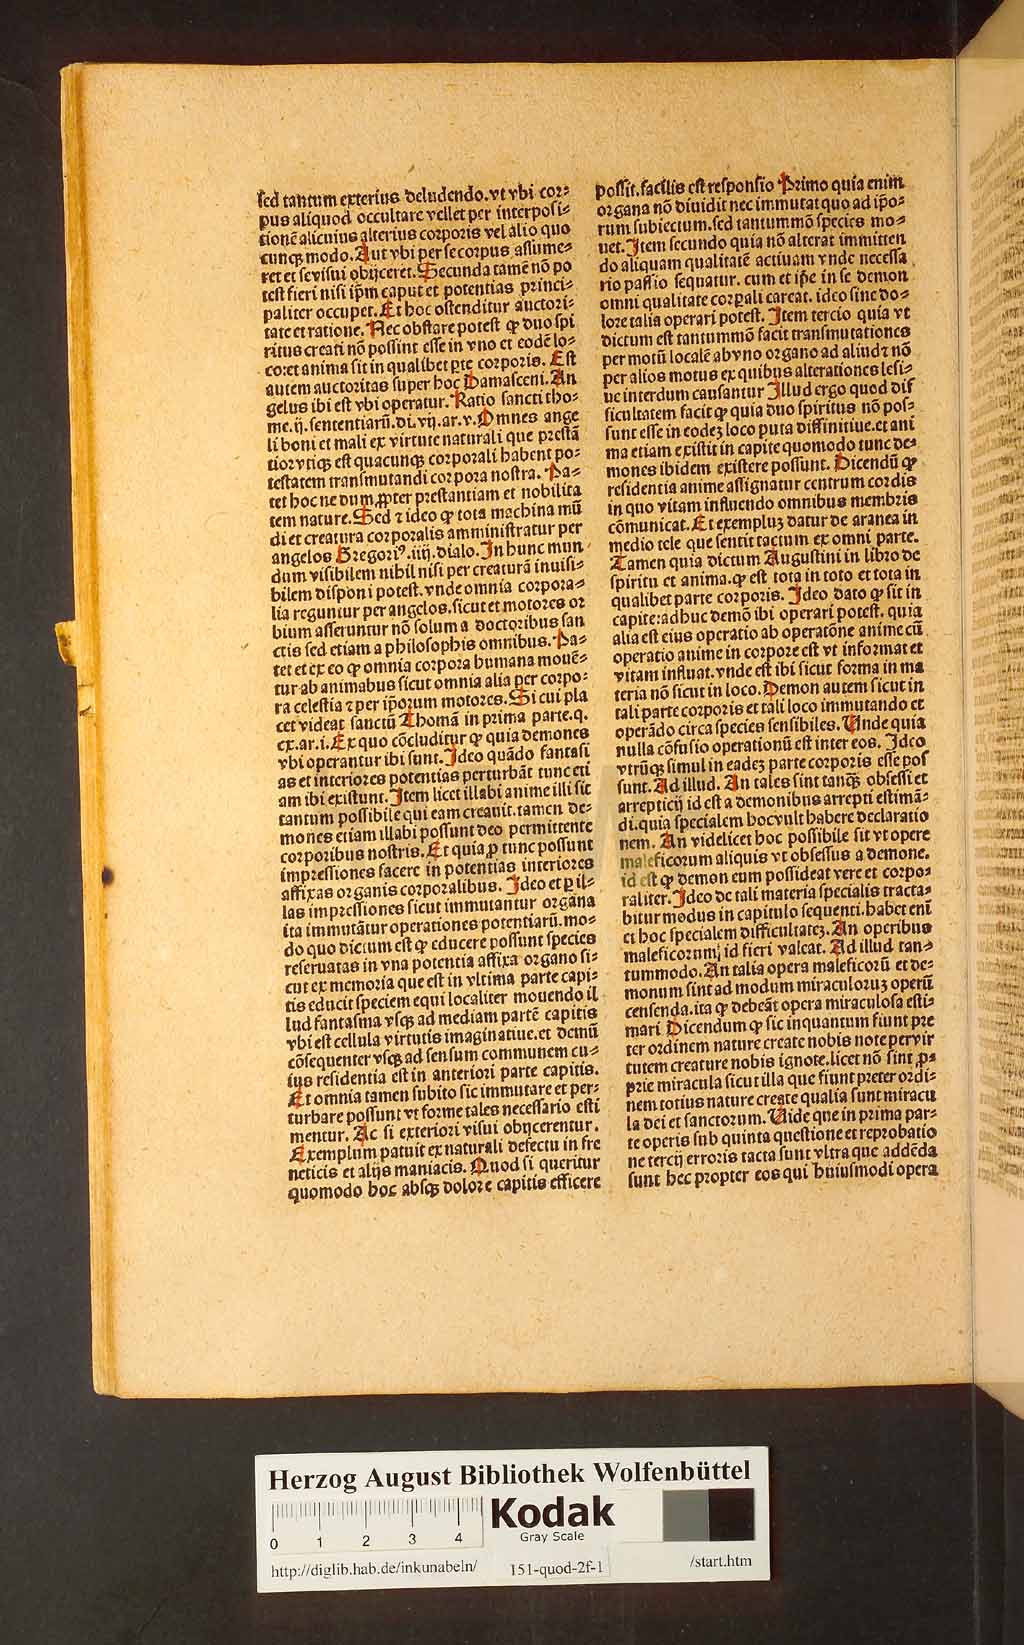 sed tantum exterius deludendo. vt vbi cor⸗
pus aliquod occultare vellet per interposi⸗
tionē alicuius alterius corporis vel alio quo
cunqꝫ modo. Aut vbi per se corpus assume⸗
ret et se visui obijceret. Secunda tamē nō po
test fieri nisi ip̄m caput et potentias princi⸗
paliter occupet. Et hoc ostenditur auctori⸗
tate et ratione. Nec obstare potest ꝙ duo spi
ritus creati nō possint esse in vno et eodē lo⸗
co: et anima sit in qualibet ꝑte corporis. Est
autem auctoritas super hoc Damasceni. An
gelus ibi est vbi operatur. Ratio sancti tho⸗
me. ij. sententiarū. di. vij. ar. v. Omnes ange
li boni et mali ex virtute naturali que prestā
tior vtiqꝫ est quacunqꝫ corporali habent po⸗
testatem transmutandi corpora nostra. Pa⸗
tet hoc ne dum ꝓpter prestantiam et nobilita
tem nature. Sed ⁊ ideo ꝙ tota machina mū
di et creatura corporalis amministratur per
angelos Gregoriꝰ. iiij. dialo. In hunc mun
dum visibilem nihil nisi per creaturā inuisi⸗
bilem disponi potest. vnde omnia corpora⸗
lia reguntur per angelos. sicut et motores or
bium asseruntur nō solum a doctoribus san
ctis sed etiam a philosophis omnibus. Pa⸗
tet et ex eo ꝙ omnia corpora humana mouē⸗
tur ab animabus sicut omnia alia per corpo⸗
ra celestia ⁊ per ip̄orum motores. Si cui pla
cet videat sanctū Thomā in prima parte. q.
cx. ar. i. Ex quo cōcluditur ꝙ quia demones
vbi operantur ibi sunt. Ideo quādo fantasi
as et interiores potentias perturbāt tunc eti
am ibi existunt. Item licet illabi anime illi sit
tantum possibile qui eam creauit. tamen de⸗
mones etiam illabi possunt deo permittente
corporibus nostris. Et quia ꝓ tunc possunt
impressiones facere in potentias interiores
affixas organis corporalibus. Ideo et ꝑ il⸗
las impressiones sicut immutantur organa
ita immutātur operationes potentiarū. mo⸗
do quo dictum est ꝙ educere possunt species
reseruatas in vna potentia affixa organo si⸗
cut ex memoria que est in vltima parte capi⸗
tis educit speciem equi localiter mouendo il
lud fantasma vsqꝫ ad mediam partē capitis
vbi est cellula virtutis imaginatiue. et demū
cōsequenter vsqꝫ ad sensum communem cu⸗
ius residentia est in anteriori parte capitis.
Et omnia tamen subito sic immutare et per⸗
turbare possunt vt forme tales necessario esti
mentur. Ac si exteriori visui obijcerentur.
Exemplum patuit ex naturali defectu in fre
neticis et alijs maniacis. Quod si queritur
quomodo hoc absqꝫ dolore capitis efficere
possit. facilis est responsio Primo quia enim
organa nō diuidit nec immutat quo ad ip̄o⸗
rum subiectum. sed tantummō species mo⸗
uet. Item secundo quia nō alterat immitten
do aliquam qualitatē actiuam vnde necessa
rio passio sequatur. cum et ip̄e in se demon
omni qualitate corꝑali careat. ideo sine do⸗
lore talia operari potest. Item tercio quia vt
dictum est tantummō facit transmutationes
per motū localē ab vno organo ad aliud ⁊ nō
per alios motus ex quibus alterationes lesi⸗
ue interdum causantur Illud ergo quod dif
ficultatem facit ꝙ quia duo spiritus nō pos⸗
sunt esse in eodeꝫ loco puta diffinitiue. et ani
ma etiam existit in capite quomodo tunc de⸗
mones ibidem existere possunt. Dicendū ꝙ
residentia anime assignatur centrum cordis
in quo vitam influendo omnibus membris
cōmunicat. Et exempluꝫ datur de aranea in
medio tele que sentit tactum ex omni parte.
Tamen quia dictum Augustini in libro de
spiritu et anima. ꝙ est tota in toto et tota in
qualibet parte corporis. Ideo dato ꝙ sit in
capite: adhuc demō ibi operari potest. quia
alia est eius operatio ab operatōne anime cū
operatio anime in corpore est vt informat et
vitam influat. vnde est ibi sicut forma in ma
teria nō sicut in loco. Demon autem sicut in
tali parte corporis et tali loco immutando et
operādo circa species sensibiles. Unde quia
nulla cōfusio operationū est inter eos. Ideo
vtrūqꝫ simul in eadeꝫ parte corporis esse pos
sunt. Ad illud. An tales sint tanqꝫ obsessi et
arrepticij id est a demonibus arrepti estimā⸗
di. quia specialem hoc vult habere declaratio
nem. An videlicet hoc possibile sit vt opere
maleficorum aliquis vt obsessus a demone.
id est ꝙ demon eum possideat vere et corpo⸗
raliter. Ideo de tali materia specialis tracta⸗
bitur modus in capitulo sequenti. habet enī
et hoc specialem difficultateꝫ. An operibus
maleficorum id fieri valeat. Ad illud tan⸗
tummodo. An talia opera maleficorū et de⸗
monum sint ad modum miraculoruꝫ operū
censenda. ita ꝙ debeāt opera miraculosa esti⸗
mari Dicendum ꝙ sic inquantum fiunt pre
ter ordinem nature create nobis note per vir
tutem creature nobis ignote. licet nō sint ꝓ⸗
prie miracula sicut illa que fiunt preter ordi⸗
nem totius nature create qualia sunt miracu
la dei et sanctorum. Uide que in prima par⸗
te operis sub quinta questione et reprobatio
ne tercij erroris tacta sunt vltra que addēda
sunt hec propter eos qui huiusmodi opera
Herzog August Bibliothek Wolfenbüttel
0 1 2 3 4
Kodak
Gray Scale
http://diglib.hab.de/inkunabeln/
151-quod-2f-1
/start.htm